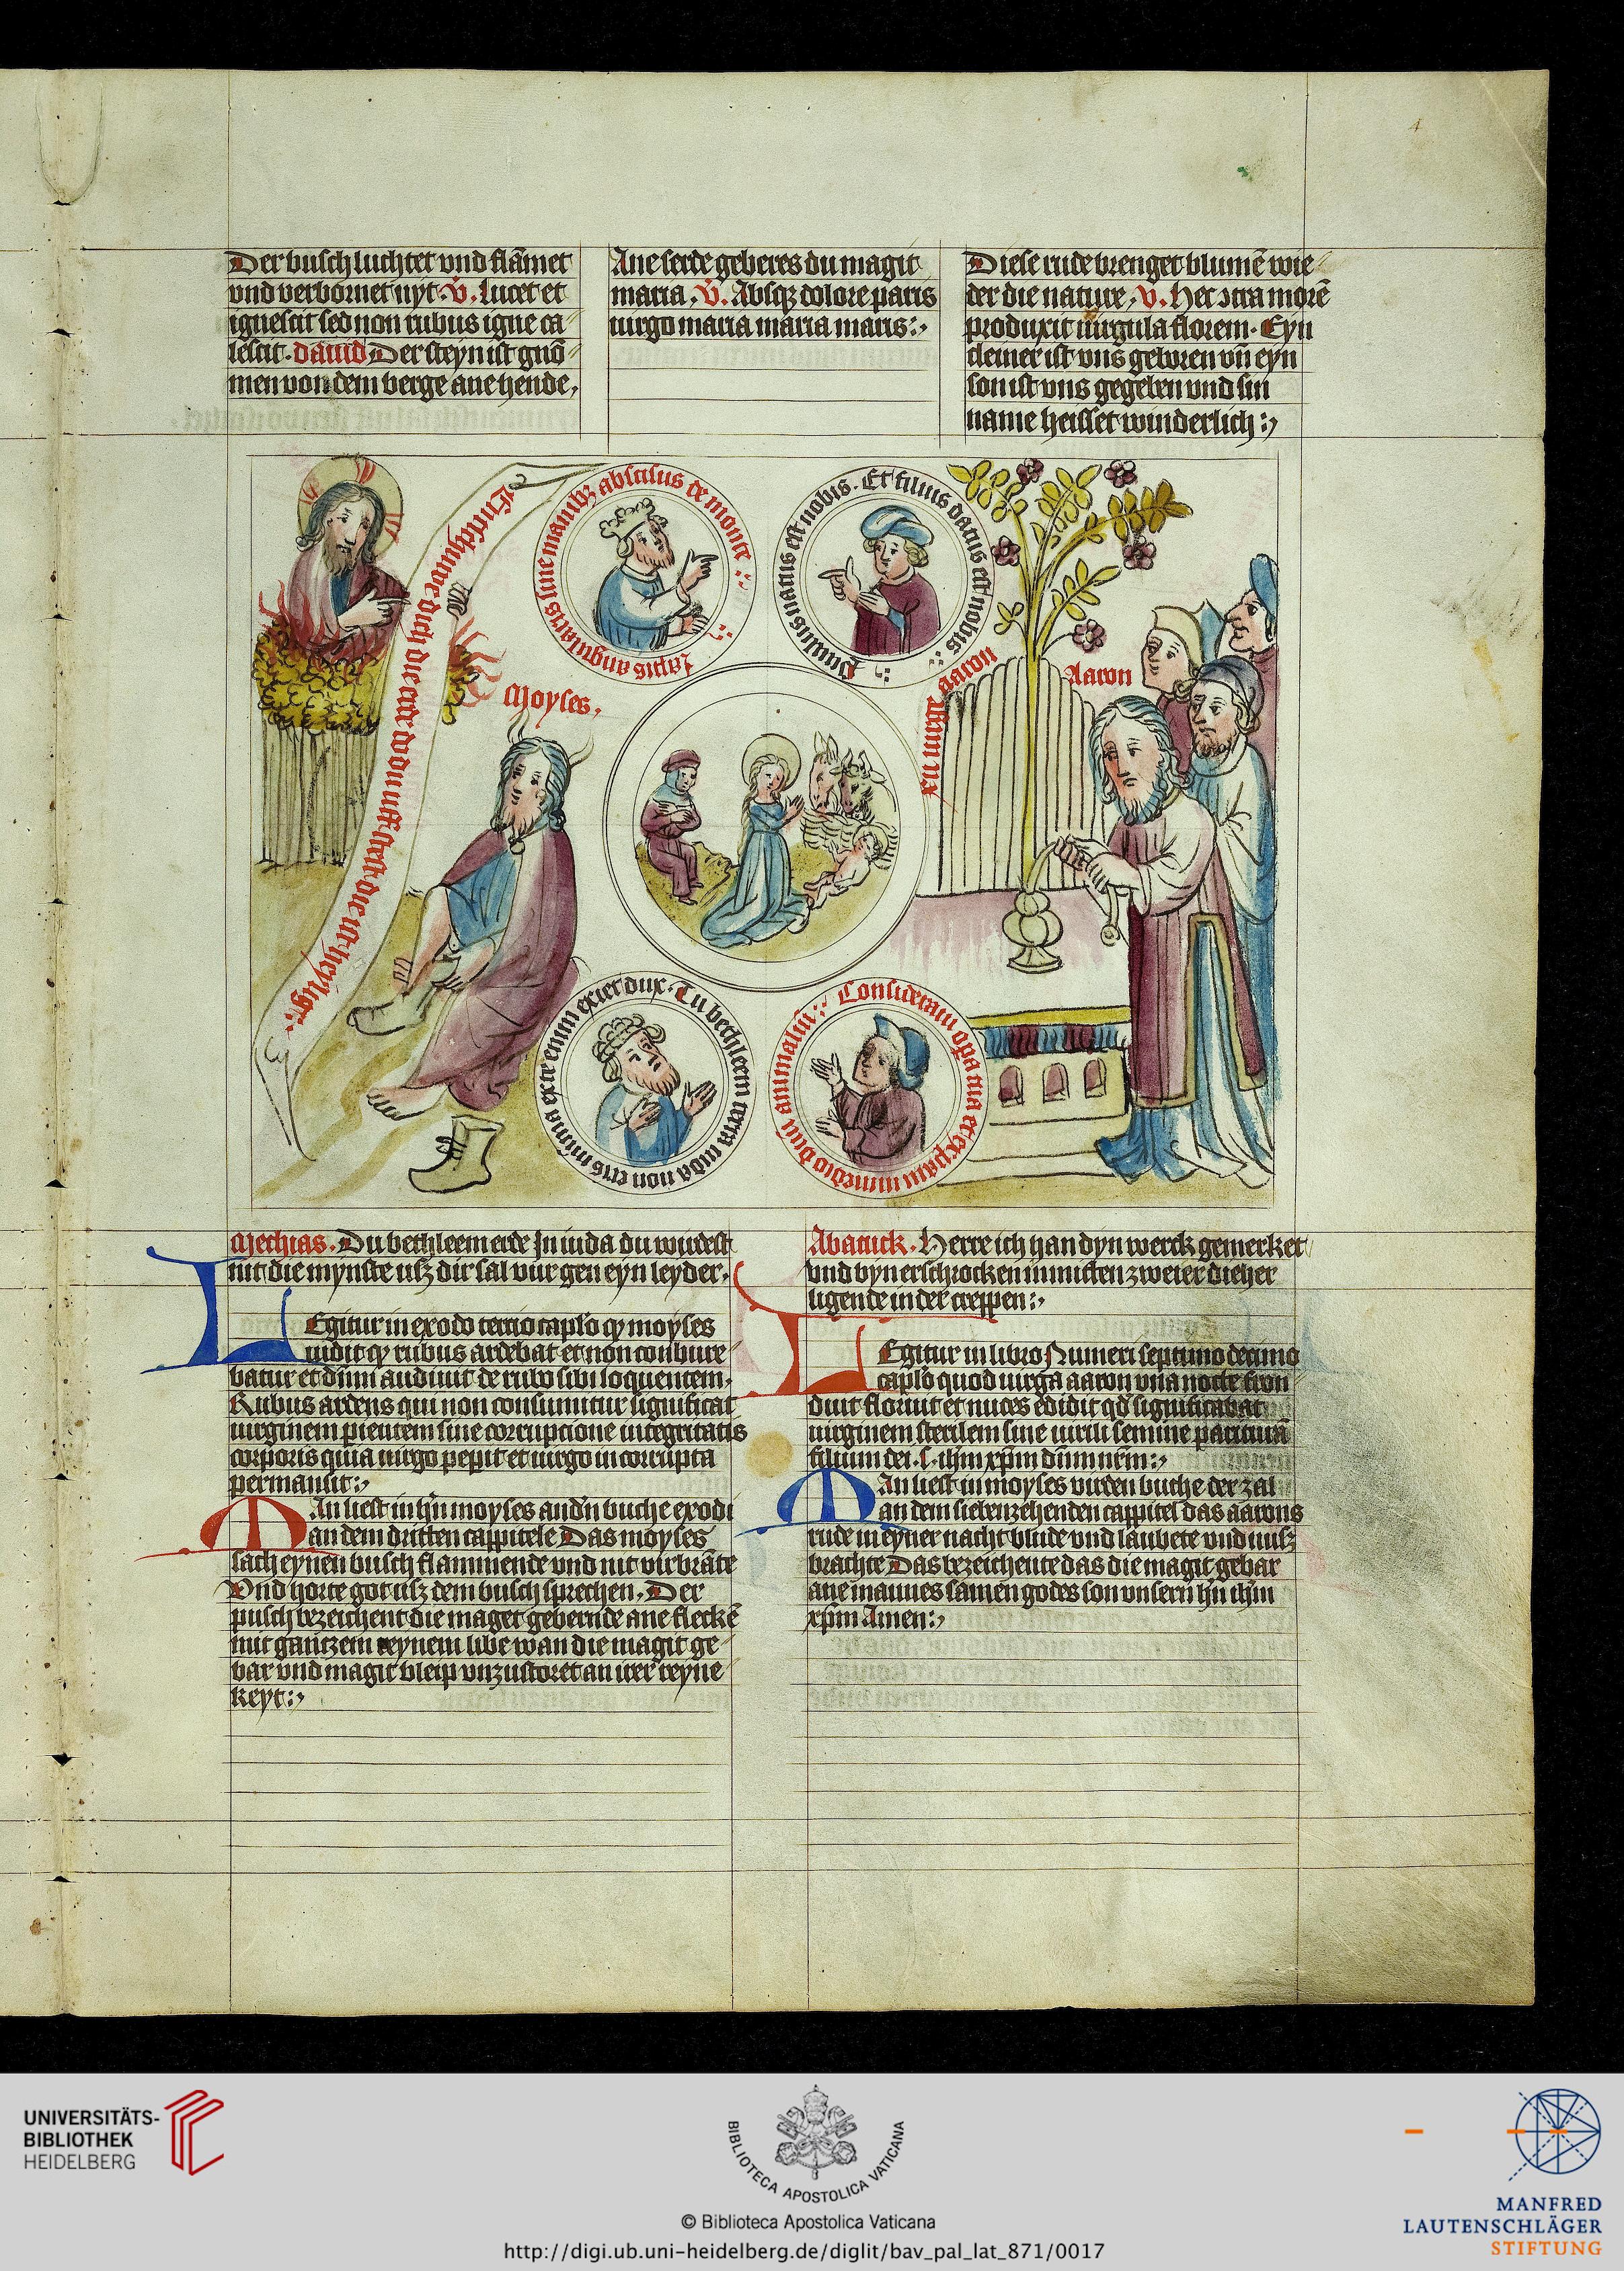 4
Der busch luchtet vnd flāmet
vnd verbornet nyt. v̄. lucet et
ignescit sed non rubus igne ca-
lescit. dauid Der steyn ist gnō-
men von dem berge ane hende,
Ane serde geberes du magit
maria, v̄. Absqz dolore paris
uirgo maria maria maris:,
Diese rude brenget blumē wie-
der die nature, v. Hec ɔtra morē
produxit uirgula florem. Eyn
cleiner ist vns geboren vn̄ eyn
son ist vns gegeben vnd sin
name heisset wunderlich:,
Moyses,
lapis angularis sine manibz abscisus de monte
Paruulus natus est nobis. Et filius datus est nobis
virga aaron
Aaron
Tu bethleem terra iuda non eris minima ex te enim exiet dux.
Consideraui opa tua et expaui in medio duū animaliū:
Mechias. Du bethleem erde In iuda du wirdest
nit die mynste usz dir sal vur gen eyn leyder,
LEgitur in exodo tercio caplo qz moyses
uidit qz rubus ardebat et non conbure-
batur et dnm audiuit de rubo sibi loquentem.
Rubus ardens qui non consumitur significat
uirginem parientem sine corrupcione integritatis
corporis quia uirgo pepit et uirgo incorrupta
permansit:,
MAn liest in hn moyses andn buche exodi
an dem dritten cappitele Das moyses
sach eynen busch flammende vnd nit virbrāte
Vnd horte got usz dem busch sprechen. Der
pusch bezeichent die maget gebernde ane fleckē
mit gantzem reynem libe wan die magit ge-
bar vnd magit bleip vnzustoret an irer reyne
keyt:,
Abacuck. Herre ich han dyn werck gemerket
vnd byn erschrocken in mitten zweier dieher
ligende in der creppen:,
LEgitur in libro Numeri septimo decimo
caplo quod uirga aaron vna nocte fron
duit floruit et nuces edidit qd significabat
uirginem sterilem sine uirili semine paritură
filium dei .s. ihm xpm dnm nrm:,
MAn liest in moyses virden buche der zal
an dem siebenzehenden cappitel das aarons
rude in eyner nacht blude vnd laubete vnd nusz
brachte Das bezeichente das die magit gebar
ane mannes samen godes son vnsern hn ihm
xpm Amen:,
UNIVERSITÄTS-
BIBLIOTHEK
HEIDELBERG
BIBLIOTECA APOSTOLICA VATICANA
© Biblioteca Apostolica Vaticana
http://digi.ub.uni-heidelberg.de/diglit/bav_pal_lat_871/0017
MANFRED
LAUTENSCHLÄGER
STIFTUNG